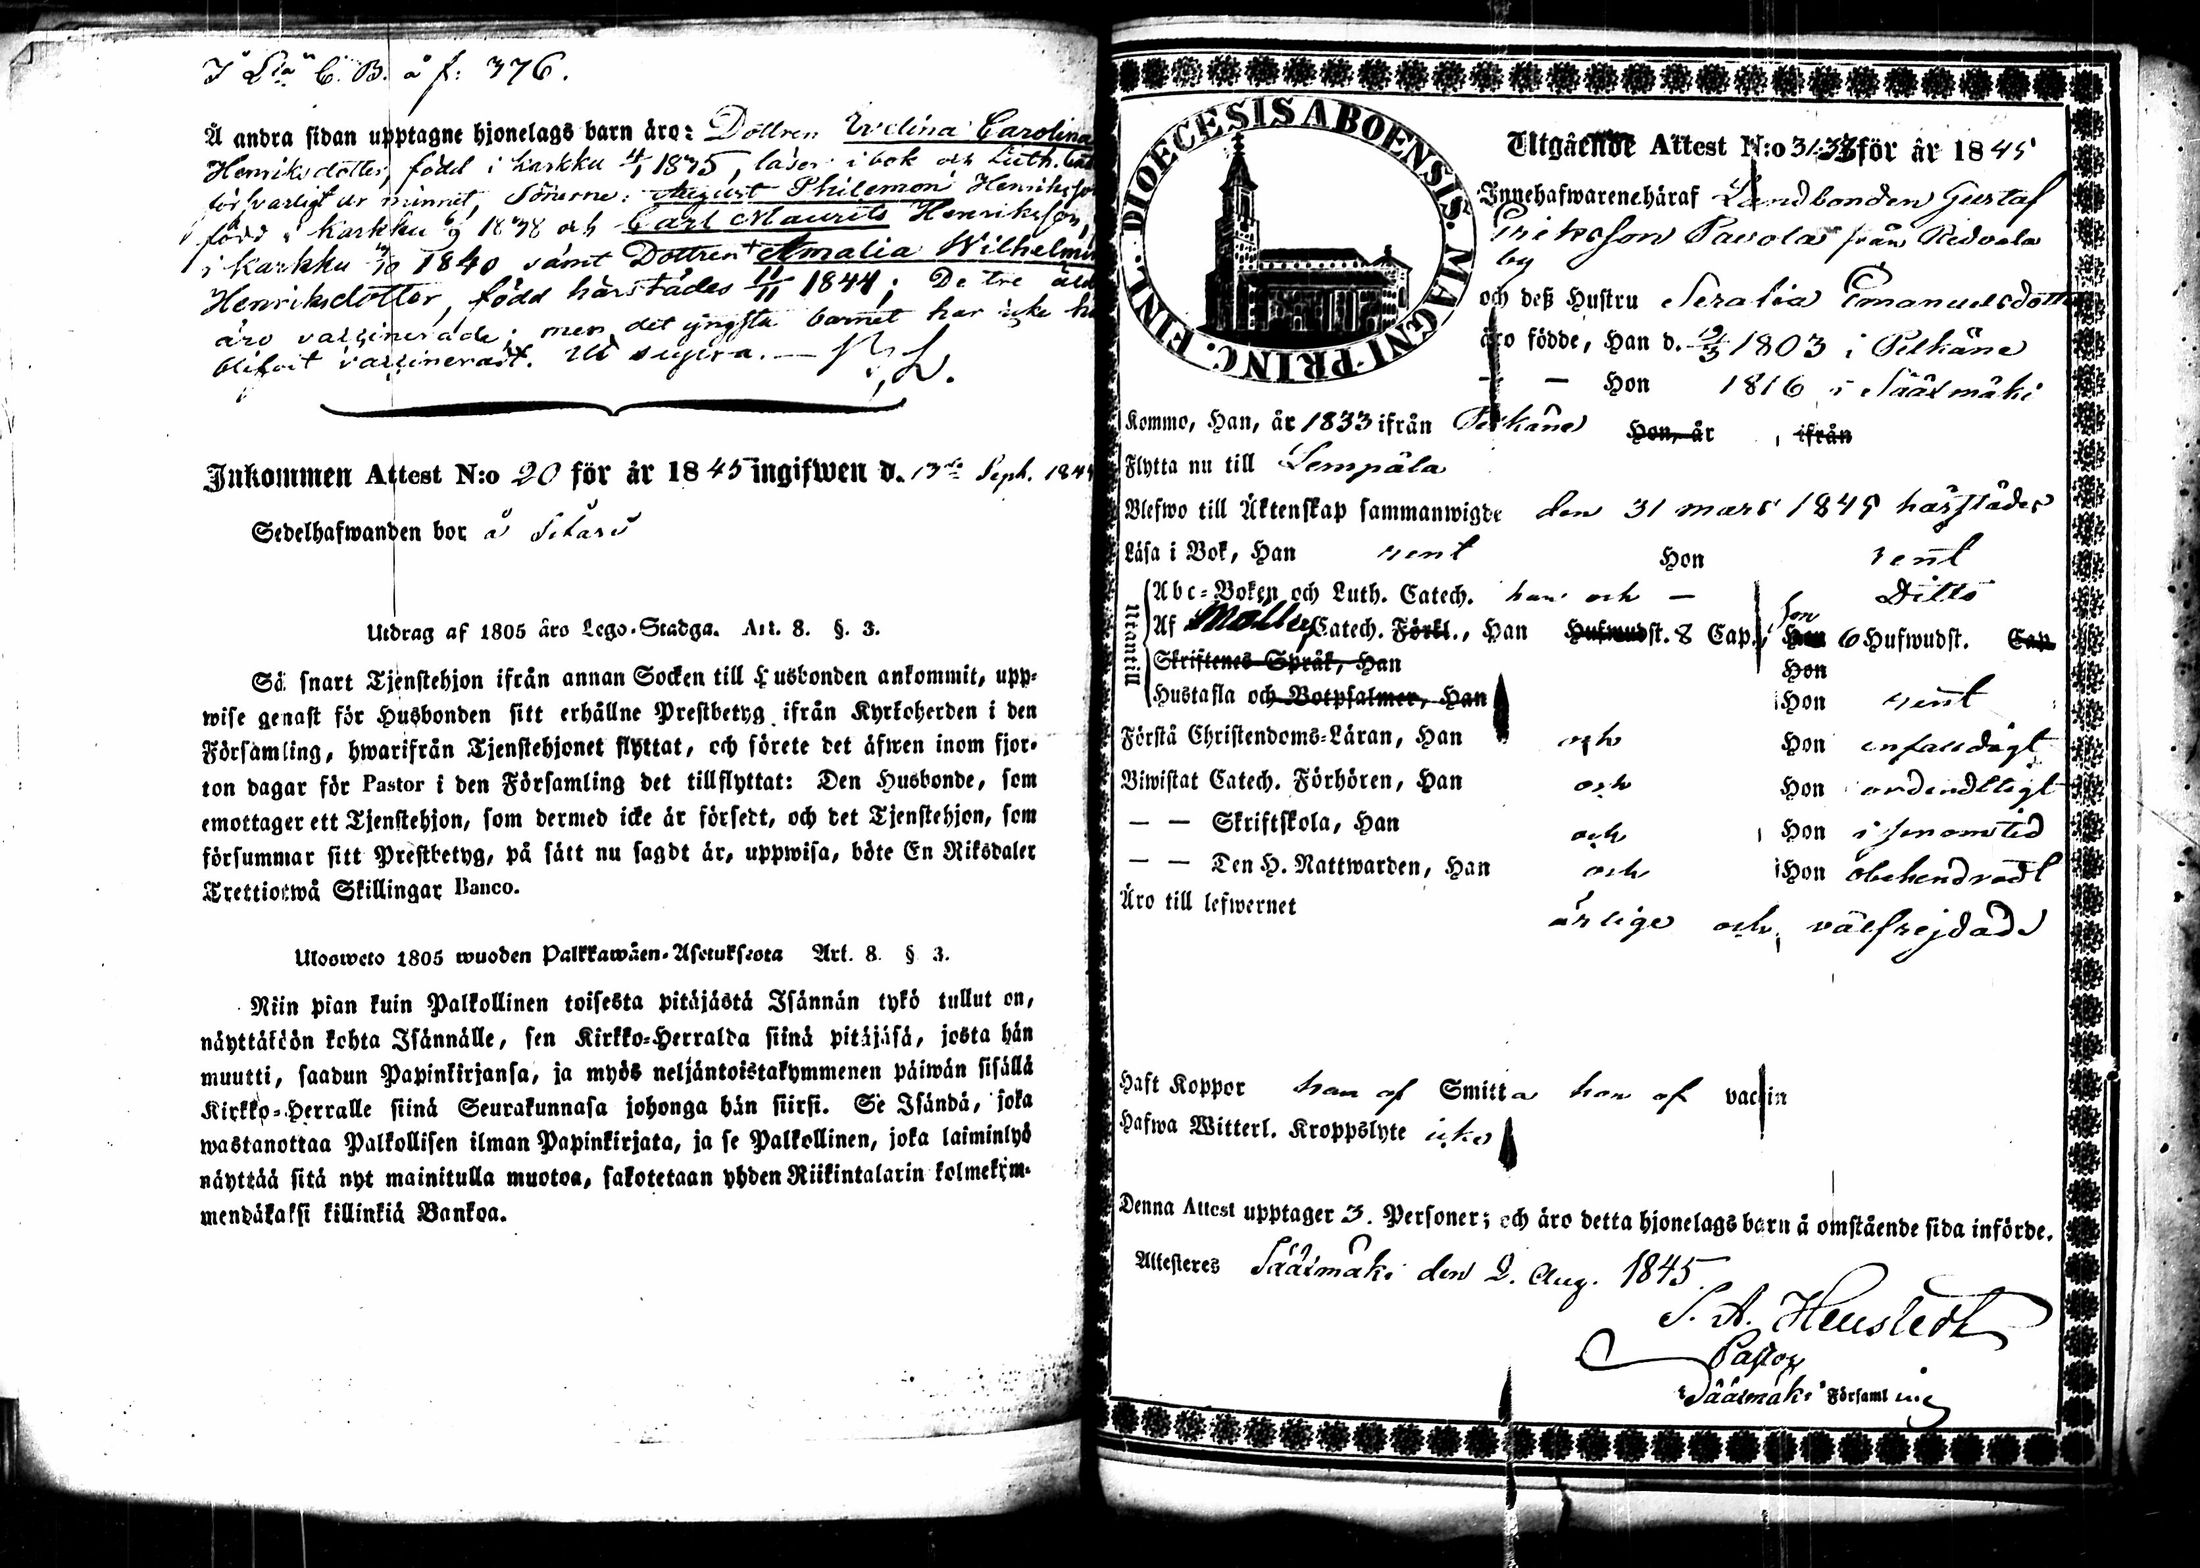 I L:a C. B. å f: 376.
Å andra sidan upptagne hjonelags barn äro: Dottren Evelina Carolina
Henriksdotter, född i Karkku 4/1 1835, läser i bok och Luth. Cat
försvarligt ur minnet, Sönerne: August Philemon Henriksson
född i Karkku 6/9 1838 och Carl Maurits Henriksson,
i Karkku /10 1840 samt Dottren Amalia Wilhelmin
Henriksdotter, född härstädes 11/11 1844; De tre äld
äro vaccinerade; men det yngsta barnet har icke hu
blifvit vaccinerad. Ut supra. —
Inkommen Attest N:o 20 för år 1845 ingifwen d. 13de Sept. 184
Sedelhafwanden bor å
Utdrag af 1805 åro Lego-Stadga. Art. 8. §. 3.
Så snart Tjenstehjon ifrån annan Socken till Husbonden ankommit, upp-
wise genast för Husbonden sitt erhållne Prestbetyg ifrån Kyrkoherden i den
Församling, hwarifrån Tjenstehjonet flyttat, och förete det äfwen inom fjor-
ton dagar för Pastor i den Församling det tillflyttat: Den Husbonde, som
emottager ett Tjenstehjon, som dermed icke är försedt, och det Tjenstehjon, som
försummar sitt Prestbetyg, på sätt nu sagdt är, uppwisa, böte En Riksdaler
Trettiotwå Skillingar Banco.
Ulosweto 1805 wuoden Palkkawäen-Asetuksesta Art. 8. § 3.
Niin pian kuin Palkollinen toisesta pitäjästä Isännän tykö tullut on,
näyttäköön kohta Isännälle, sen Kirkko-Herralda siinä pitäjäsä, josta hän
muutti, saadun Papinkirjansa, ja myös neljäntoistakymmenen päiwän sisällä
Kirkko-Herralle siinä Seurakunnasa johonga hän siirsi. Se Isändä, joka
wastanottaa Palkollisen ilman Papinkirjata, ja se Palkollinen, joka laiminlyö
näyttää sitä nyt mainitulla muotoa, sakotetaan yhden Riikintalarin kolmekym-
mendäkaksi killinkiä Bankoa.
DIOECESIS ABOENSIS. MAGNI PRINC. FINL.
Utgående Attest N:o 31.33 för år 1845
Innehafwarene häraf Landbonden Gustaf
Eriksson Pavola från Ridvala
by
och deß Hustru Seralia Emanuelsdotter
äro födde, Han d. 19/3 1803 i Pelkäne
— — Hon 1816 i Sääxmäki
Kommo, Han, år 1833 ifrån Pelkäne Hon, år , ifrån
Flytta nu till Lempäla
Blefwo till Äktenskap sammanwigde den 31 mars 1845 härstädes
Läsa i Bok, Han rent Hon rent
Utantill
Abc-Boken och Luth. Catech. han och — Ditto
Af Möllers Catech. Förkl., Han Hufwudst. 8 Cap., Hon 6 Hufwudst. Cap.
Skriftenes Språk, Han Hon
Hustafla och Botpsalmer, Han Hon rent
Förstå Christendoms-Läran, Han och Hon enfaldigt
Biwistat Catech. Förhören, Han och Hon ordentligt
— — Skriftskola, Han och Hon i sinom tid
— — Den H. Nattwarden, Han och Hon obehindradt
Äro till lefwernet ärlige och välfrejdade
Haft Koppor han af Smitta hon af vaccin
Hafwa Witterl. Kroppslyte icke
Denna Attest upptager 3. Personer; och äro detta hjonelags barn å omstående sida införde.
Attesteres Sääxmäki den 2. Aug. 1845.
Pastor
Sääxmäki Församling